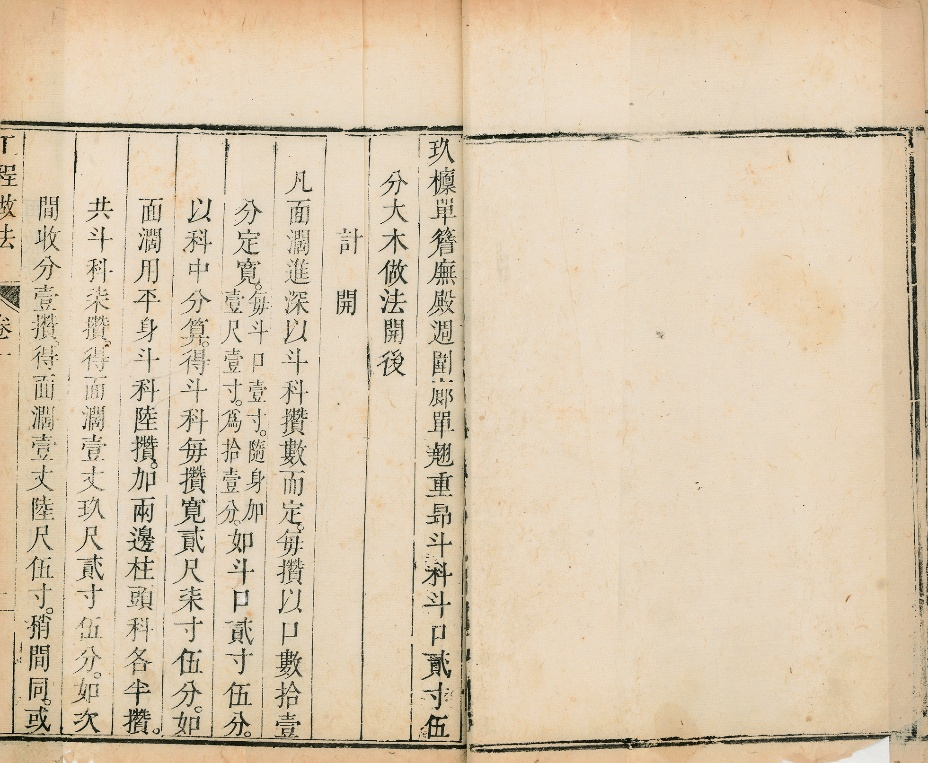 玖檩單簷廡殿週圍廊單翹重昻斗科斗口貳寸伍
分大木做法開後
計開
凡面濶進深以斗科攢數而定。每攢以口數拾壹
分定寬。每斗口壹寸。隨身加壹尺壹寸。爲拾壹分。如斗口貳寸伍分。
以科中分算。得斗科每攢寬貳尺柒寸伍分。如
面濶用平身斗科陸攢。加兩邊柱頭科各半攢。
共斗科柒攢。得面濶壹丈玖尺貳寸伍分。如次
間收分壹攢。得面濶壹丈陸尺伍寸。稍間同。或
工程做法 卷一